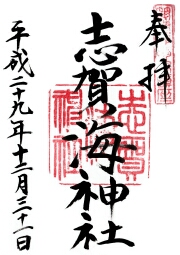 奉拝
志賀海神社
平成二十九年十二月三十一日